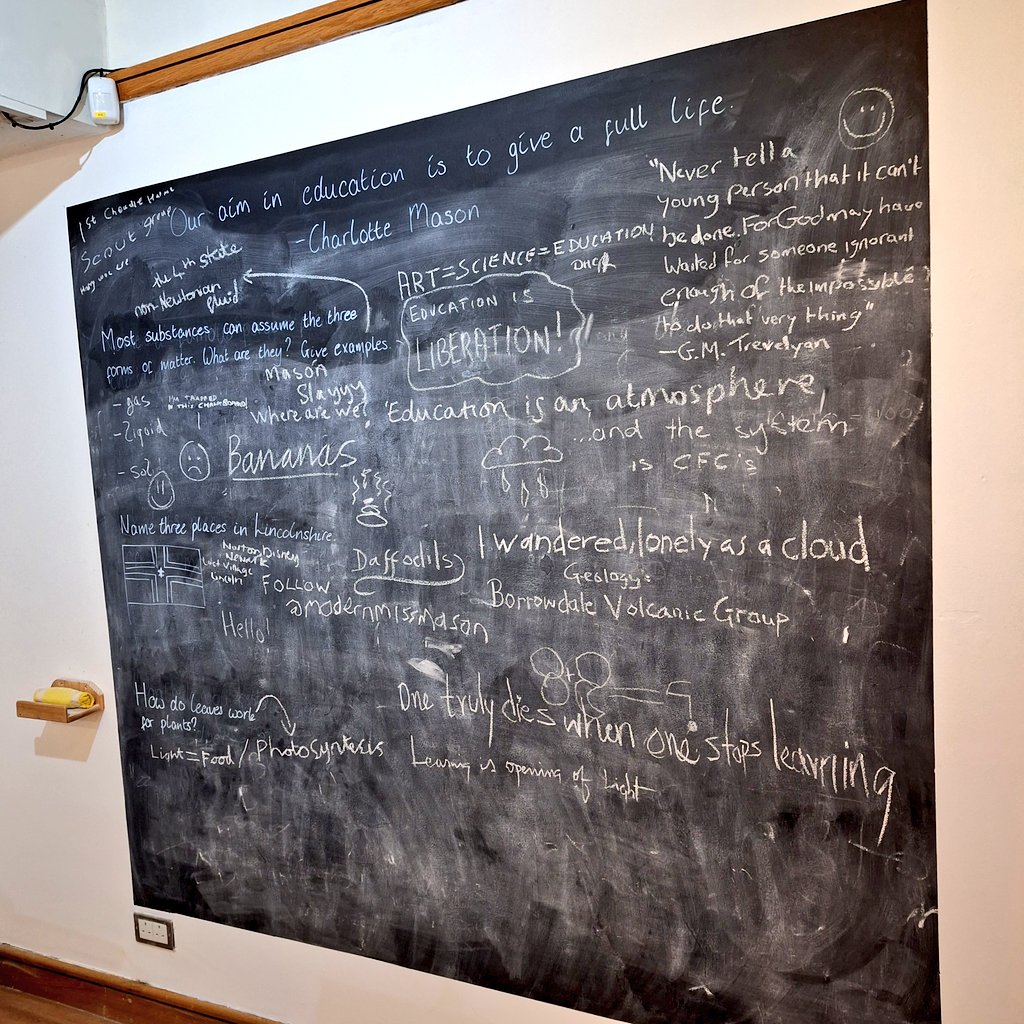 Our aim in education is to give a full life.
-Charlotte Mason
1st Cheadle Hulme
Scout group
were ere
the 4th state
non-Newtonian
fluid
Most substances can assume the three
forms of matter. What are they? Give examples.
- gas
I'M TRAPPED
IN THIS CHALKBOARD!
- Liquid
- Sol
Mason
Slayyy
Where are we?
Bananas
ART=SCIENCE=EDUCATION
EDUCATION IS
LIBERATION!
"Never tell a
young person that it can't
be done. For God may have
Waited for someone ignorant
enough of the impossible
to do that very thing"
-G.M. Trevelyan
'Education is an atmosphere,
...and the system
is CFC's
Name three places in Lincolnshire.
Norton Disney
Newark
Village
Lincoln
FOLLOW
@modernmissmason
Hello!
Daffodils
I wandered, lonely as a cloud
Geology:
Borrowdale Volcanic Group
How do leaves work
for plants?
Light=Food/Photosyntesis
One truly dies when one stops learning
Learning is opening of Light